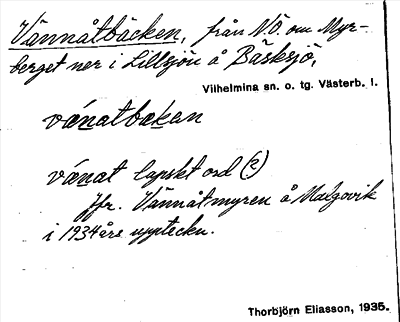 Vännåtbäcken, från N.Ö. om Myr-
berget ner i Lillsjön å Bäsksjö,
Vilhelmina sn. o. tg. Västerb. l.
vánatbækan
vánat lapskt ord (?)
Jfr. Vännåtmyren å Malgovik
i 1934 års uppteckn.
Thorbjörn Eliasson, 1935.